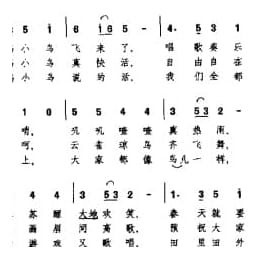 5 1 6 16 5 — 4. 5 3 1
小鸟飞来了， 唱歌奏乐
小鸟真快活， 自由自在
小鸟说的话， 我们全都
1 0 5 5 5 5 4 3 53 2 —
唱， 叽叽喳喳真热闹，
呵， 云雀琼鸟齐飞舞，
上， 大家都像鸟儿一样，
4 4 3 53 2 — 1. 3 5 1
苏醒大地欢笑， 春天就要
同高歌， 预祝大家
游戏又歌唱， 田里田外